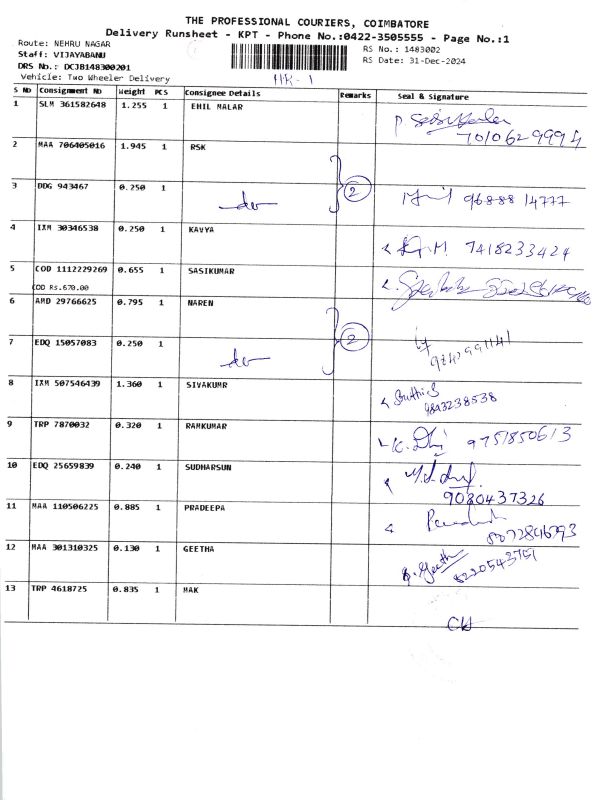 THE PROFESSIONAL COURIERS, COIMBATORE
Delivery Runsheet - KPT - Phone No.:0422-3505555 - Page No.:1
Route: NEHRU NAGAR
RS No.: 1483002
Staff: VIJAYABANU
RS Date: 31-Dec-2024
DRS No.: DCJB148300201
Vehicle: Two Wheeler Delivery
HR-1
S NO Consignment No Weight PCS Consignee Details Remarks Seal & Signature
1 SLM 361582648 1.255 1 EHIL MALAR
7010629994
2 MAA 706405016 1.945 1 RSK
3 DDG 943467 0.250 1 do 2 96888 14777
4 IXM 30346538 0.250 1 KAVYA 7418233424
5 COD 1112229269 0.655 1 SASIKUMAR
COD Rs.670.00
6 AMD 29766625 0.795 1 NAREN
7 EDQ 15057083 0.250 1 do 2
8 IXM 507546439 1.360 1 SIVAKUMR
9843238538
9 TRP 7870032 0.320 1 RAMKUMAR 9751850613
10 EDQ 25659839 0.240 1 SUDHARSUN
9080437326
11 MAA 110506225 0.885 1 PRADEEPA
12 MAA 301310325 0.130 1 GEETHA
Geetha
8220543751
13 TRP 4618725 0.835 1 MAK